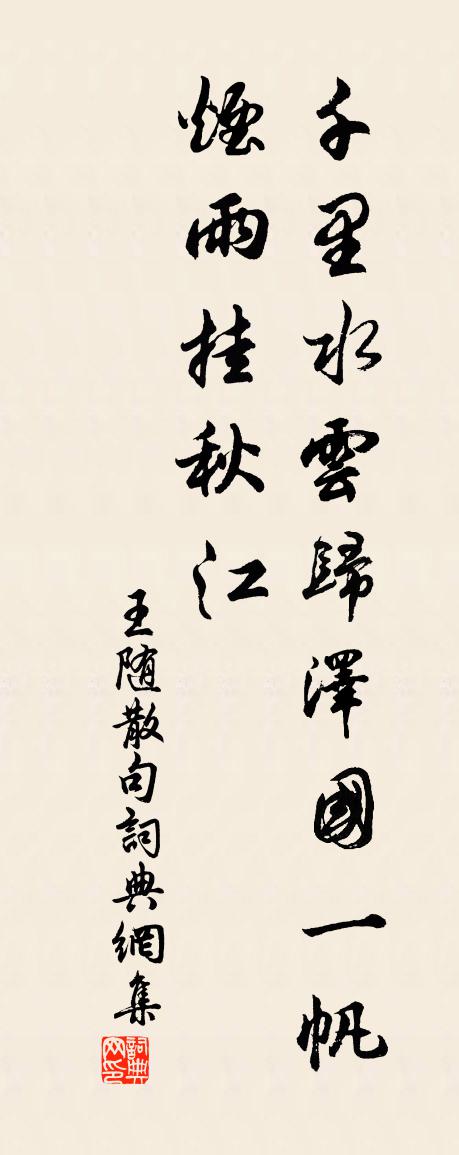 千里水雲歸澤國一帆
煙雨挂秋江
王随散句詞典網集
詞典网印